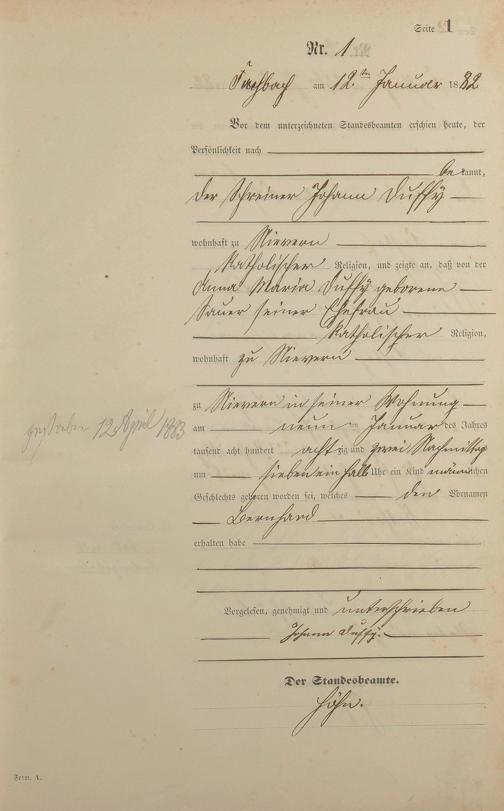 Seite 1
Nr. 1
Fachbach am 12ten Januar 1882
Vor dem unterzeichneten Standesbeamten erschien heute, der
Persönlichkeit nach
bekannt,
der Schreiner Johann Duffy
wohnhaft zu Nievern
katholischer Religion, und zeigte an, daß von der
Anna Maria Duffy geborene
Sauer seiner Ehefrau
katholischer Religion,
wohnhaft zu Nievern
zu Nievern in seiner Wohnung
am neunten Januar des Jahres
tausend acht hundert achtzig und zwei Nachmittag
um sieben ein halb Uhr ein Kind männlichen
Geschlechts geboren worden sei, welches den Vornamen
Bernhard
erhalten habe
gestorben 12 April 1883
Vorgelesen, genehmigt und unterschrieben
Johann Duffy.
Der Standesbeamte.
Höhn.
Form. A.